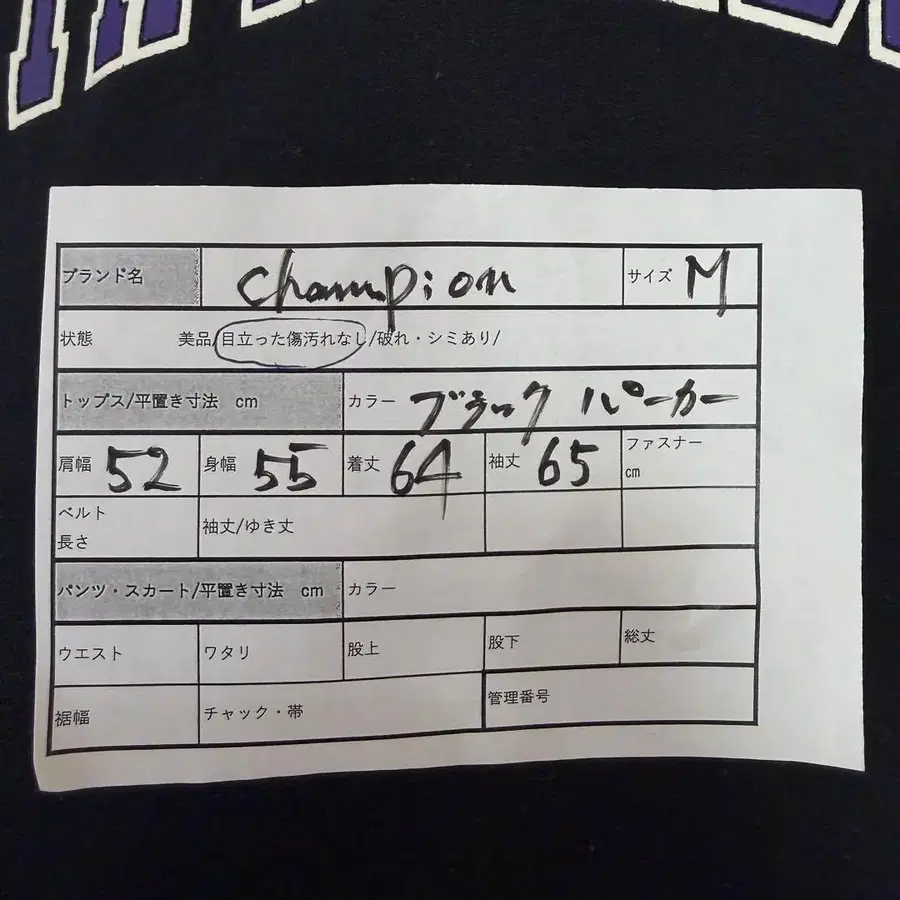 ブランド名 champion サイズ M
状態 美品/目立った傷汚れなし/破れ・シミあり/
トップス/平置き寸法 cm カラー ブラック パーカー
肩幅 52 身幅 55 着丈 64 袖丈 65 ファスナー
cm
ベルト
長さ 袖丈/ゆき丈
パンツ・スカート/平置き寸法 cm カラー
ウエスト ワタリ 股上 股下 総丈
裾幅 チャック・帯 管理番号